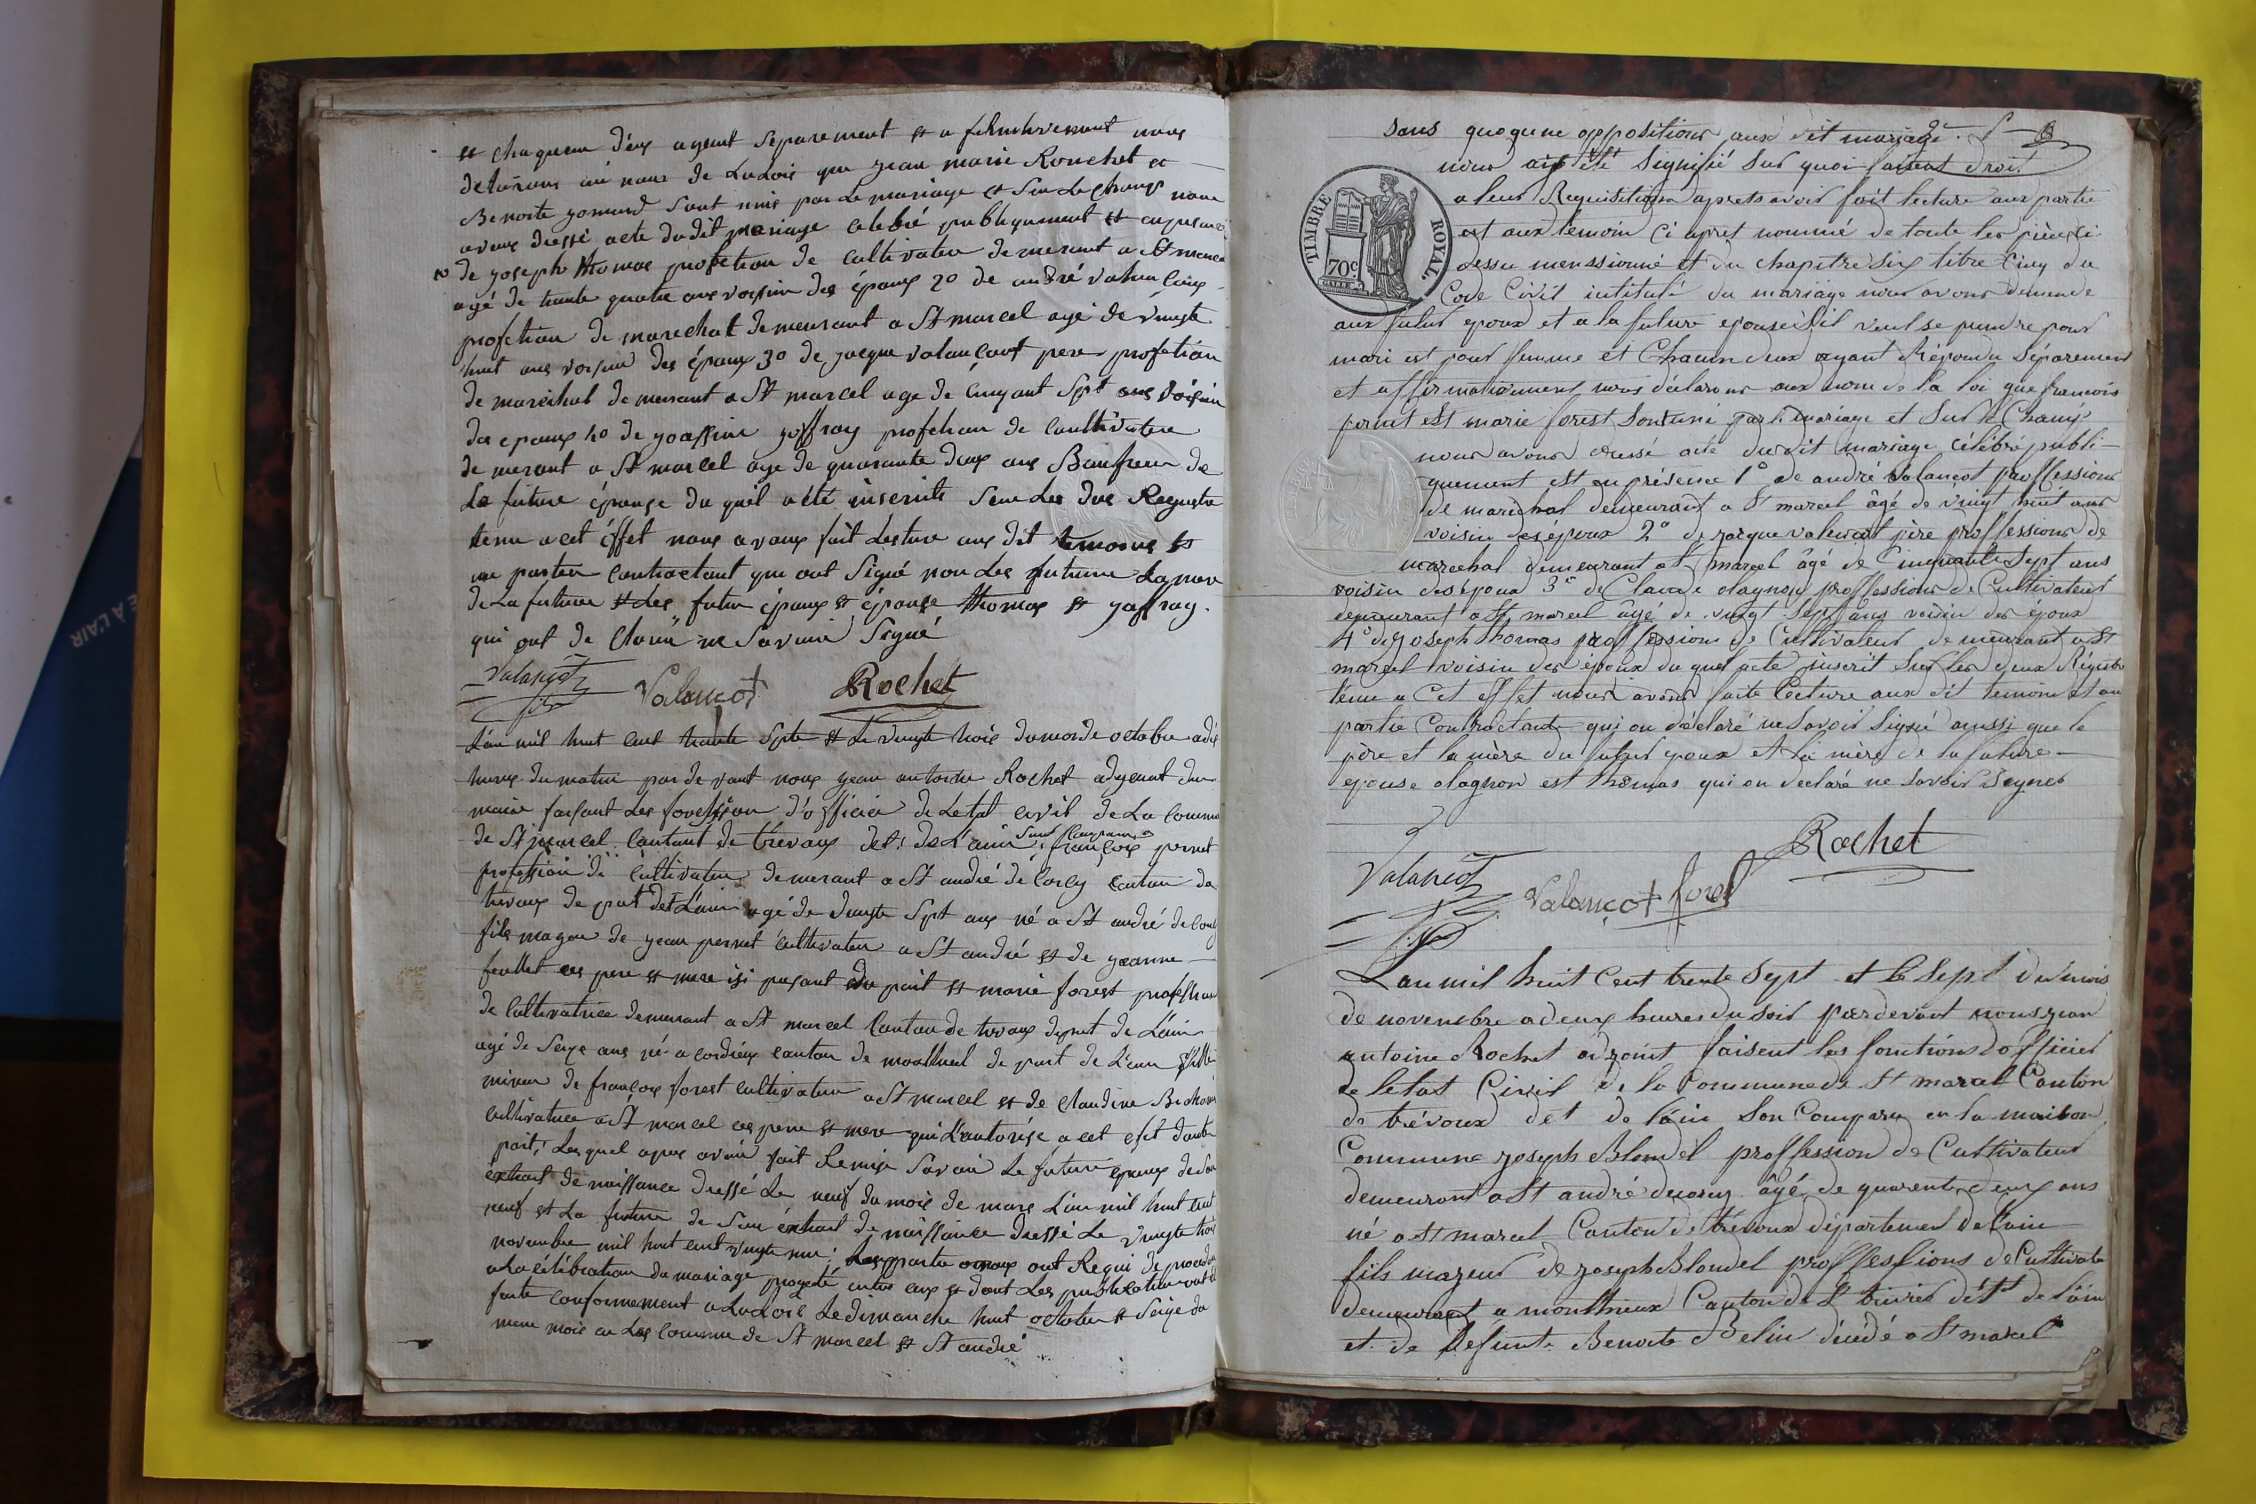 et chaqueun d'eux ayant separement et afirmativement nous
declarons au nom de La Loix que jean marie Rouchet et
Benoite gomand sont unis par Le mariage et sur Le champ nous
avons dressé acte dudit mariage celebré publiquement et en presence
1o de joseph thomas profetion de cultivateur demeurant a St marcel
agé de trante quatre ans voisin des époux 2o de andré valançot
profetion de marechal demeurant a St marcel agé de vingte
huit ans voisin des époux 3o de jacque valançot pere profetion
de marechal demeurant a St marcel age de cinquant sept ans voisin
des epoux 4o de joaffray profetion de cultivateur
demeurant a St marcel age de quarante deux ans Beaufrere de
La future épouse du quel a été inscrite sur Les deux Registre
tenu a cet éffet nous avons fait Lecture aux dit temoins et
au parties contractant qui ont signé non Les future La mere
de La future et Les futur époux et épouse thomas et jaffray
qui ont declaré ne savoir signé
Valançot Valançot Rochet
L'an mil huit cent trante sept et Le vingte trois du mois de octobre a dix
heures du matin par de vant nous jean antoine Rochet adjeoint du
maire faisant Les fonction d'officier de Letat civil de La commune
de St marcel cantont de trevoux det. de L'ain sont comparus françois pernet
profession de cultivateur demeurant a St andré de Corcy canton de
trevoux de part det L'ain agé de vingte sept ans né a St andré de Corcy
fils mageur de jean pernet cultivateur a St andré et de jeanne
feullet ces pere et mere isi presant du part et marie forest profession
de cultivatrice demeurant a St marcel canton de trevoux depnt de L'ain
agé de seize ans né a cordieux canton de montluel de part de L'ain fille
mineur de françois forest cultivateur a St marcel et de claudine
cultivatrice a St marcel ces pere et mere qui L'autorise a cet efet dautre
part, Lesquel apres avoir fait Remise savoir Le futur epoux de son
extrait de naissance dressé Le neuf du mois de mars L'an mil huit cent
neuf et La future de son extrait de naissance dressé Le vingte trois
novembre mil huit cent vingte un; Les partie ont Requi de proceder
a La célébration du mariage projeté entre eux et dont Les publication ont été
faite conformement a La Loix Le dimanche huit octobre et seize du
meme mois en Les commune de St marcel et St andré
sans quoqune oppositions aux dit mariage
nous ait été signifié sur quoi faisant droit
a leur Requisition aprets avoir fait lecture aux partie
est aux temoin ci apret nommé de toute les pièces ci
dessu menssionné et du chapitre six titre cinq du
Code Civil intitulé du mariage nous avons demendé
aux futur epoux et a la future epouse s'il veul se prendre pour
mari est pour femme et chacun deux ayant Répondu séparement
et affirmativement nous déclarons aux nom de la loi que francois
pernet est marie forest sont uni par le mariage et sur le champ
nous avons dressé acte du dit mariage célébré publi-
quement est en présence 1o de andré valançot proffession
de maréchal demeurant a St marcel âgé de vingt huit ans
voisin des époux 2o de jacque valençot père proffession de
marechal demeurant a St marcel âgé de cinquante sept ans
voisin des époux 3o de Claude olagnon proffession de Cultivateur
demeurant a St marcel âgé de vingt sept ans voisin des époux
4o de joseph thomas proffession de Cultivateur demeurant a St
marcel voisin des époux du quel acte inscrit sur les deux Régistre
tenu a Cet effet nous avons faite lecture aux dit temoins et au
partie Contractant qui on déclaré ne savoir signé aussi que le
père et la mère du futur epoux et la mère de la future
epouse olagnon est thomas qui on declaré ne savoir seigner
Rochet
Valançot Valançot forest
L'an mil huit Cent trente sept et le sept du mois
de novembre a deux heures du soir pardevant nous jean
antoine Rochet adjoint faisent les fonctions d'officier
de letat Civil de la Commune de St marcel Canton
de trévoux det de l'ain son Comparu en la maison
Commune joseph Blondel proffession de Cultivateur
demeurant a St andré decorcy âgé de quarente deux ans
né a St marcel Canton de trévoux département de l'ain
fils mageur de joseph Blondel proffessions de Cultivateur
demeurant a monthieux Canton de St trivier dét de l'ain
et de defunte Benoite Belin décédé a St marcel
TIMBRE ROYAL
70c.